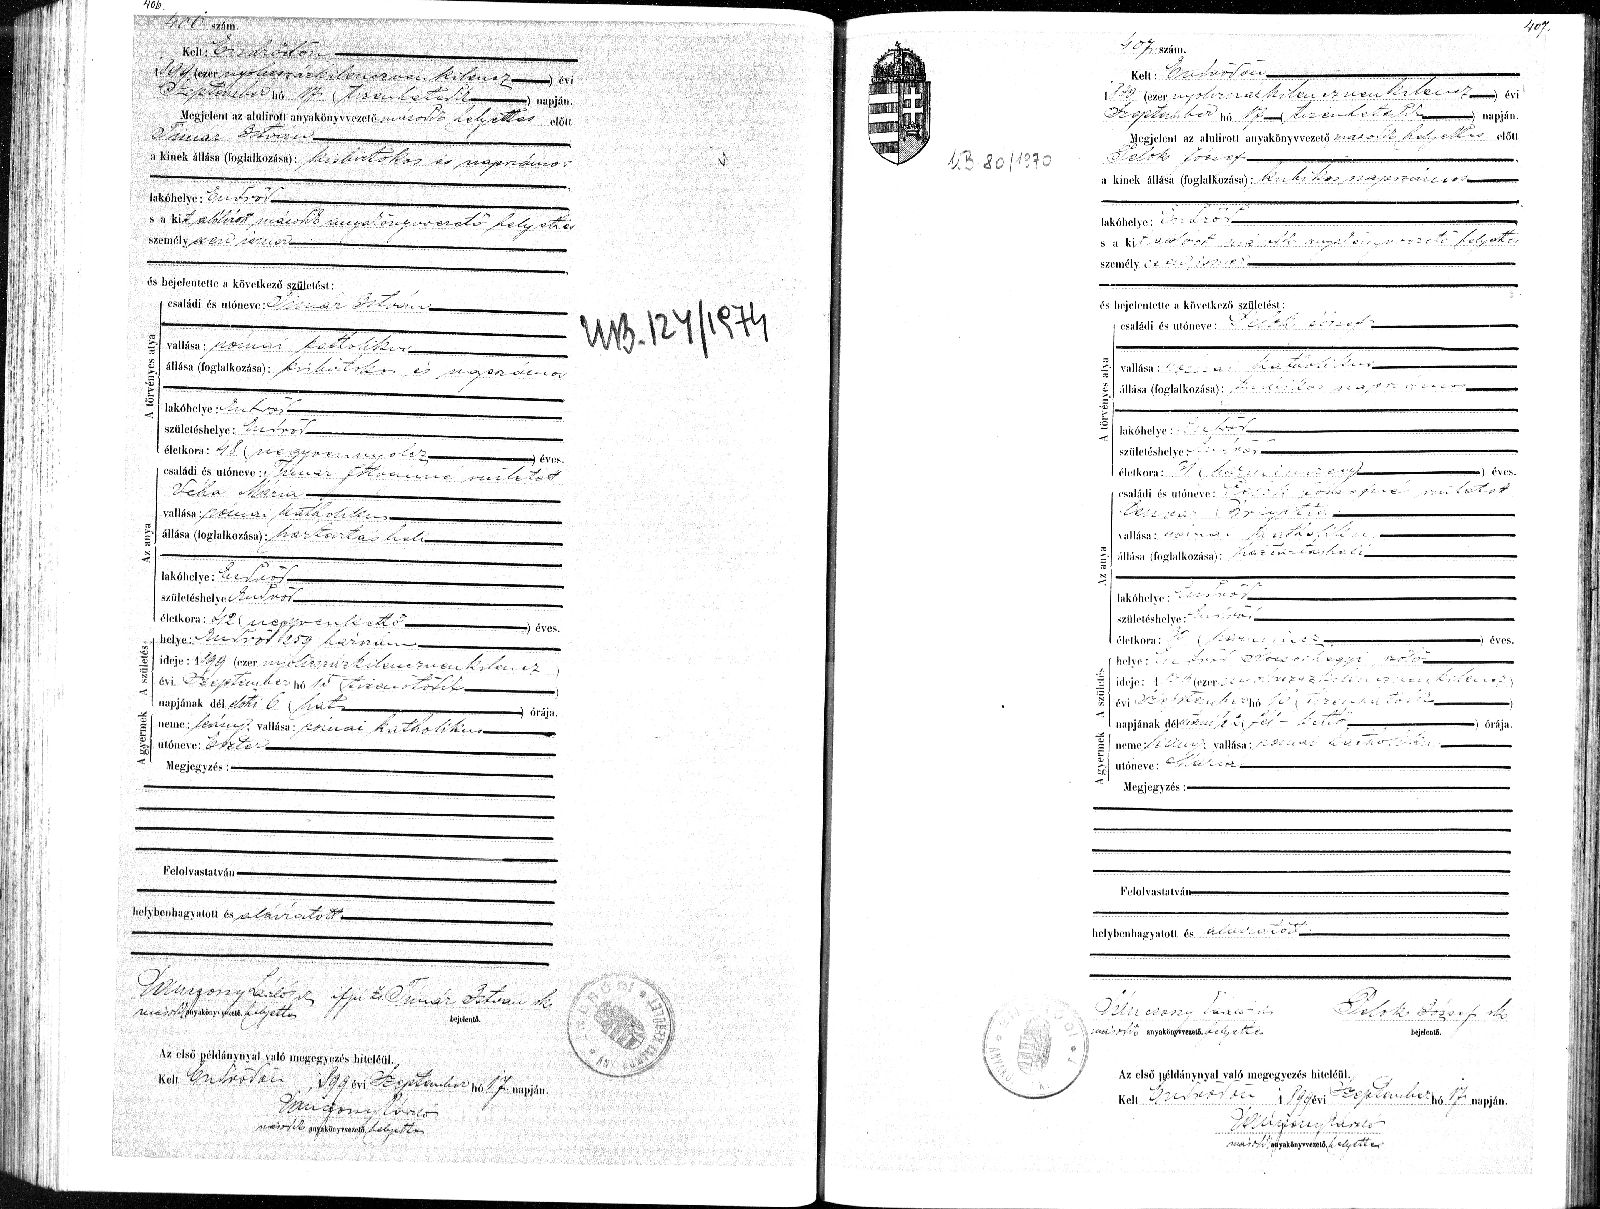 406.
406 szám.
Kelt: Endrődön
1899 (ezer nyolcszázkilenczvenkilencz) évi
Szeptember hó 17 (tizenhetedik) napján.
Megjelent az alulirott anyakönyvvezető második helyettes előtt
Timár István
a kinek állása (foglalkozása): kisbirtokos és napszámos
lakóhelye: Endrőd
s a kit alulírott második anyakönyvvezető helyettes
személyesen ismer
és bejelentette a következő születést:
A törvényes atya
családi és utóneve: Timár István
vallása: római katholikus
állása (foglalkozása): kisbirtokos és napszámos
lakóhelye: Endrőd
születéshelye: Endrőd
életkora: 48 (negyvennyolcz) éves.
Az anya
családi és utóneve: Timár Istvánné született
Mária
vallása: római katholikus
állása (foglalkozása): háztartásbeli
lakóhelye: Endrőd
születéshelye: Endrőd
életkora: 42 (negyvenkettő) éves.
A születés
helye: Endrőd 1259 házszám
ideje: 1899 (ezer nyolcszázkilenczvenkilencz)
évi Szeptember hó 15 (tizenötödik)
napjának délelőtti 6 (hat) órája.
A gyermek
neme: leány, vallása: római katholikus
utóneve: Eszter
Megjegyzés:
Felolvastatván
helybenhagyatott és aláíratott
László ifjú Timár István
második anyakönyvvezető helyettes bejelentő.
Az első példánynyal való megegyezés hiteléül.
Kelt Endrődön, 1899 évi Szeptember hó 17 napján.
László
második anyakönyvvezető helyettes
UB. 124/1974
407.
407 szám.
Kelt: Endrődön
1899 (ezer nyolcszázkilenczvenkilencz) évi
Szeptember hó 17 (tizenhetedik) napján.
Megjelent az alulirott anyakönyvvezető második helyettes előtt
Pelok József
a kinek állása (foglalkozása): kubikos napszámos
lakóhelye: Endrőd
s a kit alulírott második anyakönyvvezető helyettes
személyesen ismer
és bejelentette a következő születést:
A törvényes atya
családi és utóneve: Pelok József
vallása: római katholikus
állása (foglalkozása): kubikos napszámos
lakóhelye: Endrőd
születéshelye: Endrőd
életkora: 31 (harminczegy) éves.
Az anya
családi és utóneve: Pelok Józsefné született
vallása: római katholikus
állása (foglalkozása): háztartásbeli
lakóhelye: Endrőd
születéshelye: Endrőd
életkora: 30 (harmincz) éves.
A születés
helye: Endrőd
ideje: 1899 (ezer nyolcszázkilenczvenkilencz)
évi Szeptember hó 15 (tizenötödik)
napjának délelőtti órája.
A gyermek
neme: leány, vallása: római katholikus
utóneve: Mária
Megjegyzés:
Felolvastatván
helybenhagyatott és aláíratott
László Pelok József
második anyakönyvvezető helyettes bejelentő.
Az első példánynyal való megegyezés hiteléül.
Kelt Endrődön 1899 évi Szeptember hó 17 napján.
László
második anyakönyvvezető helyettes
80/1970